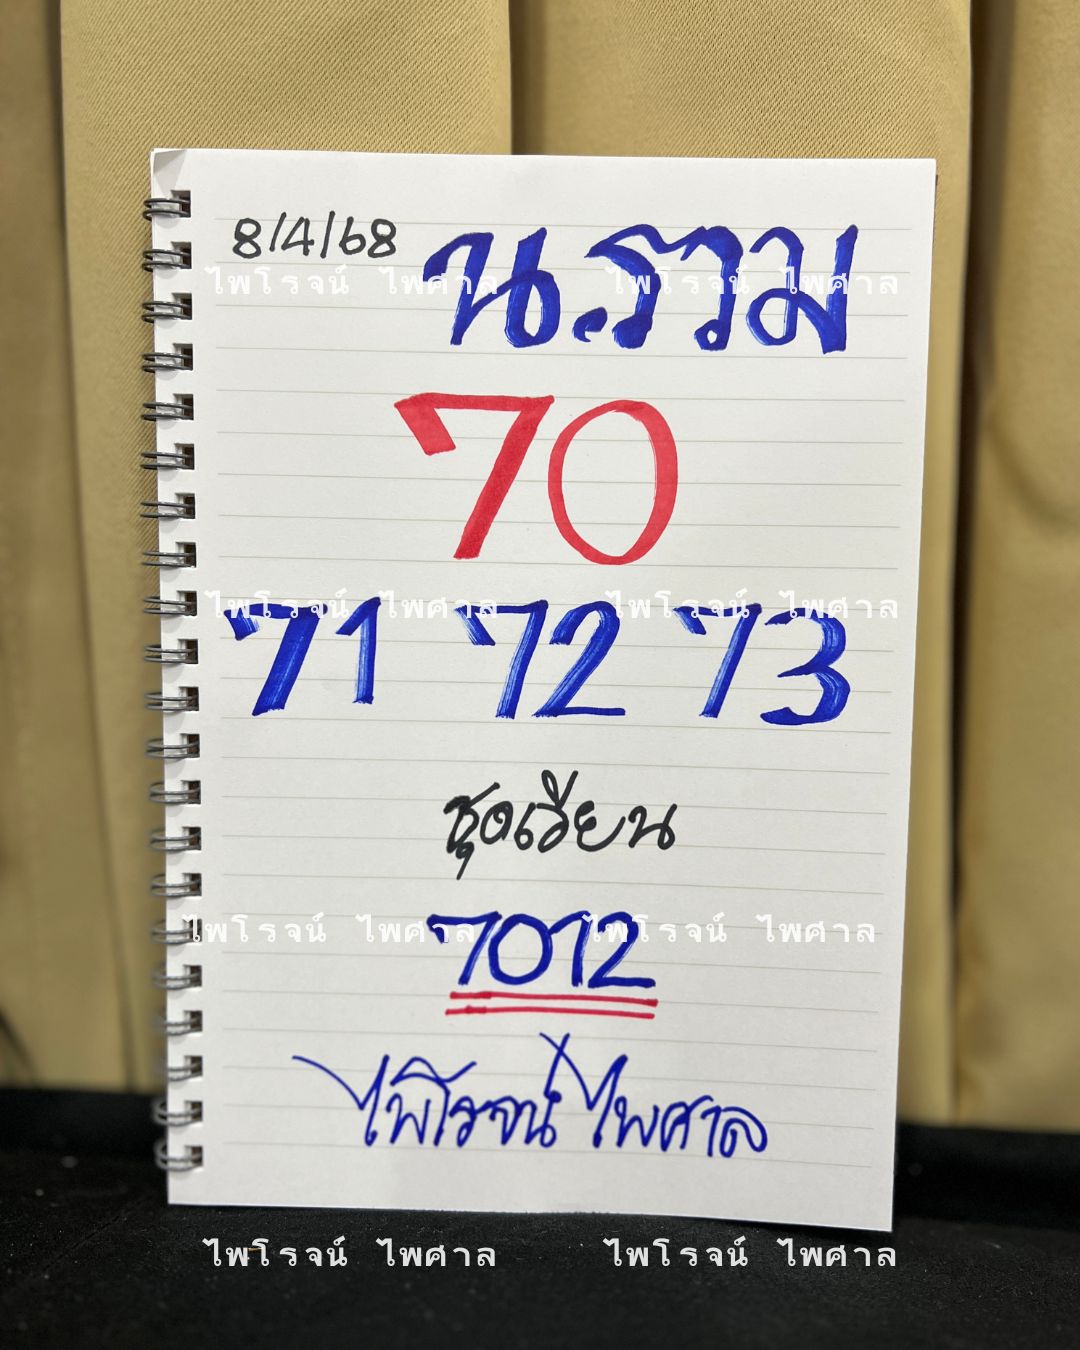 8/4/68 น.รวม
ไพโรจน์ ไพศาล ไพโรจน์ ไพศาล
70
ไพโรจน์ ไพศาล ไพโรจน์ ไพศาล
71 72 73
ชุดเวียน
ไพโรจน์ ไพศาล ไพโรจน์ ไพศาล
7012
ไพโรจน์ ไพศาล
ไพโรจน์ ไพศาล ไพโรจน์ ไพศาล